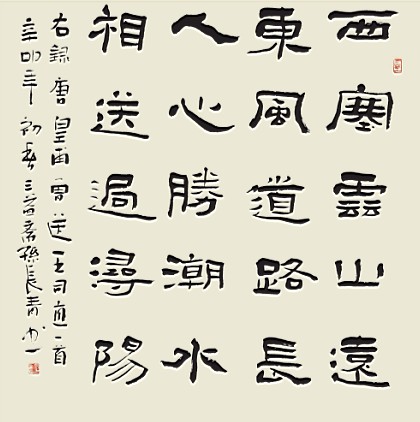 西塞雲山遠
東風道路長
人心勝潮水
相送過潯陽
右録唐皇甫曾送王司直一首
辛卯年初春三益齋孫長青书